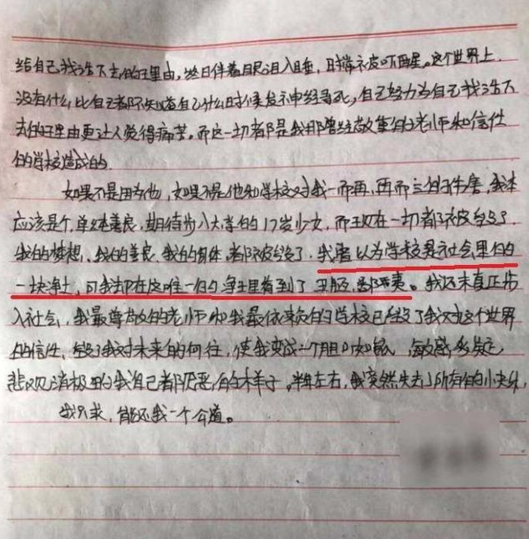 给自己找活下去的理由，终日伴着眼泪入睡，时常被吓醒。这个世界上
没有什么比自己都不知道自己什么时候发神经寻死，自己努力为自己找活下
去的理由更让人觉得痛苦。而这一切都是我那曾经敬重的老师和信任
的学校造成的
如果不是因为他，如果不是他和学校对我一而再，再而三的伤害，我本
应该是个单纯善良，期待步入大学的17岁少女，而现在一切都被毁了
我的梦想、我的善良、我的身体，都被毁了，我曾以为学校是社会里的
一块净土，可我却在这唯一的净土里看到了王服，邪恶。我还未真正步
入社会，我最尊敬的老师和我最依赖的学校已经毁了我对这个世界
的信任，毁了我对未来的向往，使我变成一个胆小如鼠，敏感多疑
悲观消极的我自己都厌恶的样子，半年左右，我突然失去了所有的小伙伴
我只求，能还我一个公道。